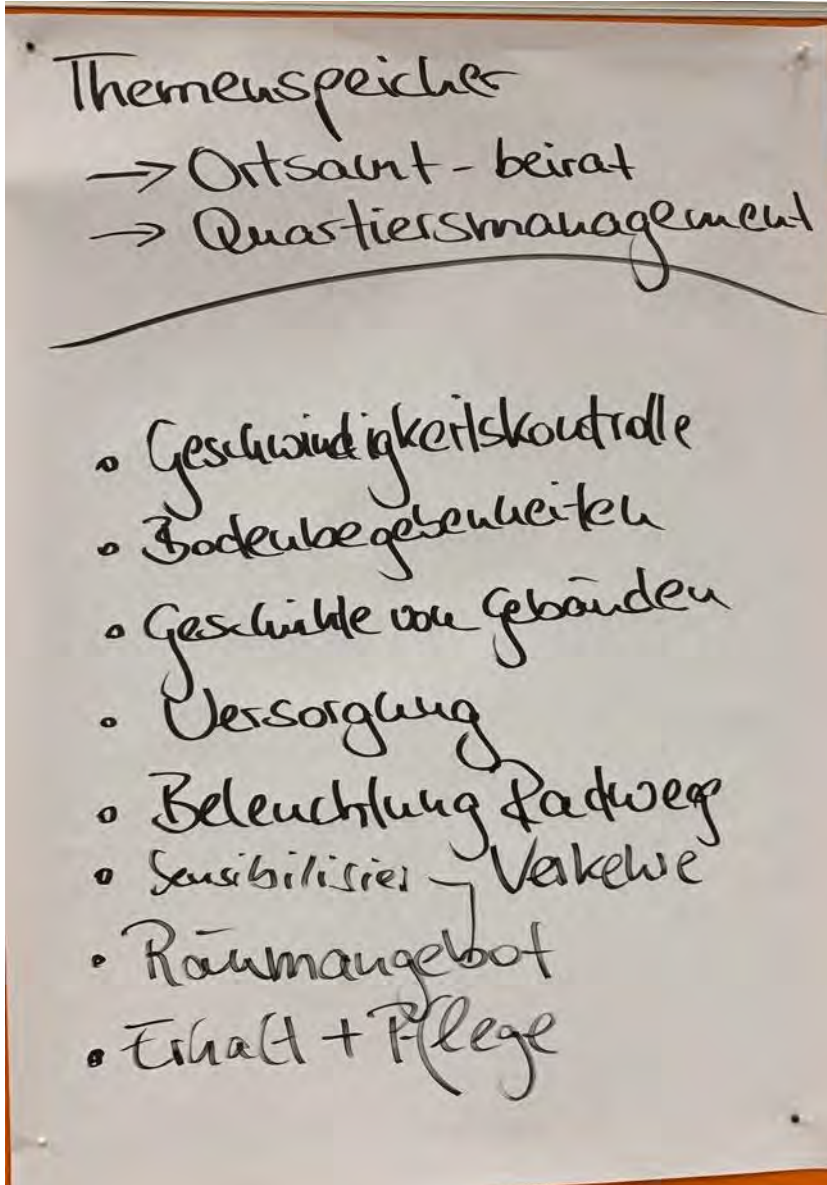 Themenspeicher
→ Ortsamt - beirat
→ Quartiersmanagement
• Geschwindigkeitskontrolle
• Bodenbegebenheiten
• Geschichte von Gebäuden
• Versorgung
• Beleuchtung Radweg
• Sensibilisier Verkehre
• Räumangebot
• Erhalt + Pflege